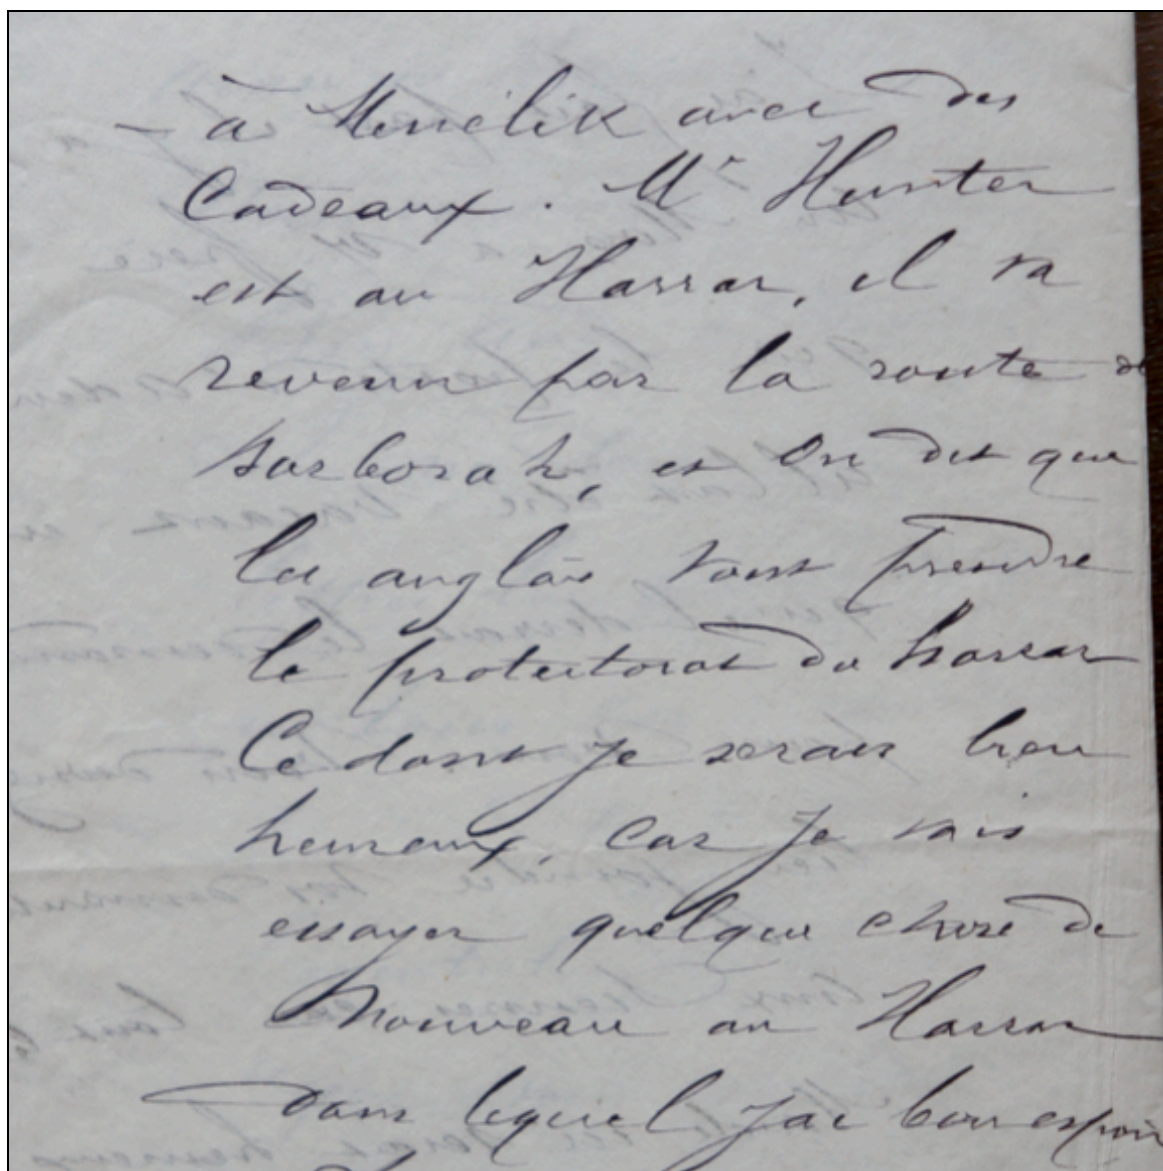 à Menelik avec des
Cadeaux. Mr Hunter
est au Harrar, il va
revenir par la route de
barborah, et on dit que
les anglais vont prendre
le protectorat du harrar
Ce dont je serais bien
heureux, car je vais
essayer quelque chose de
Nouveau au Harrar
dans lequel jai bon espoir